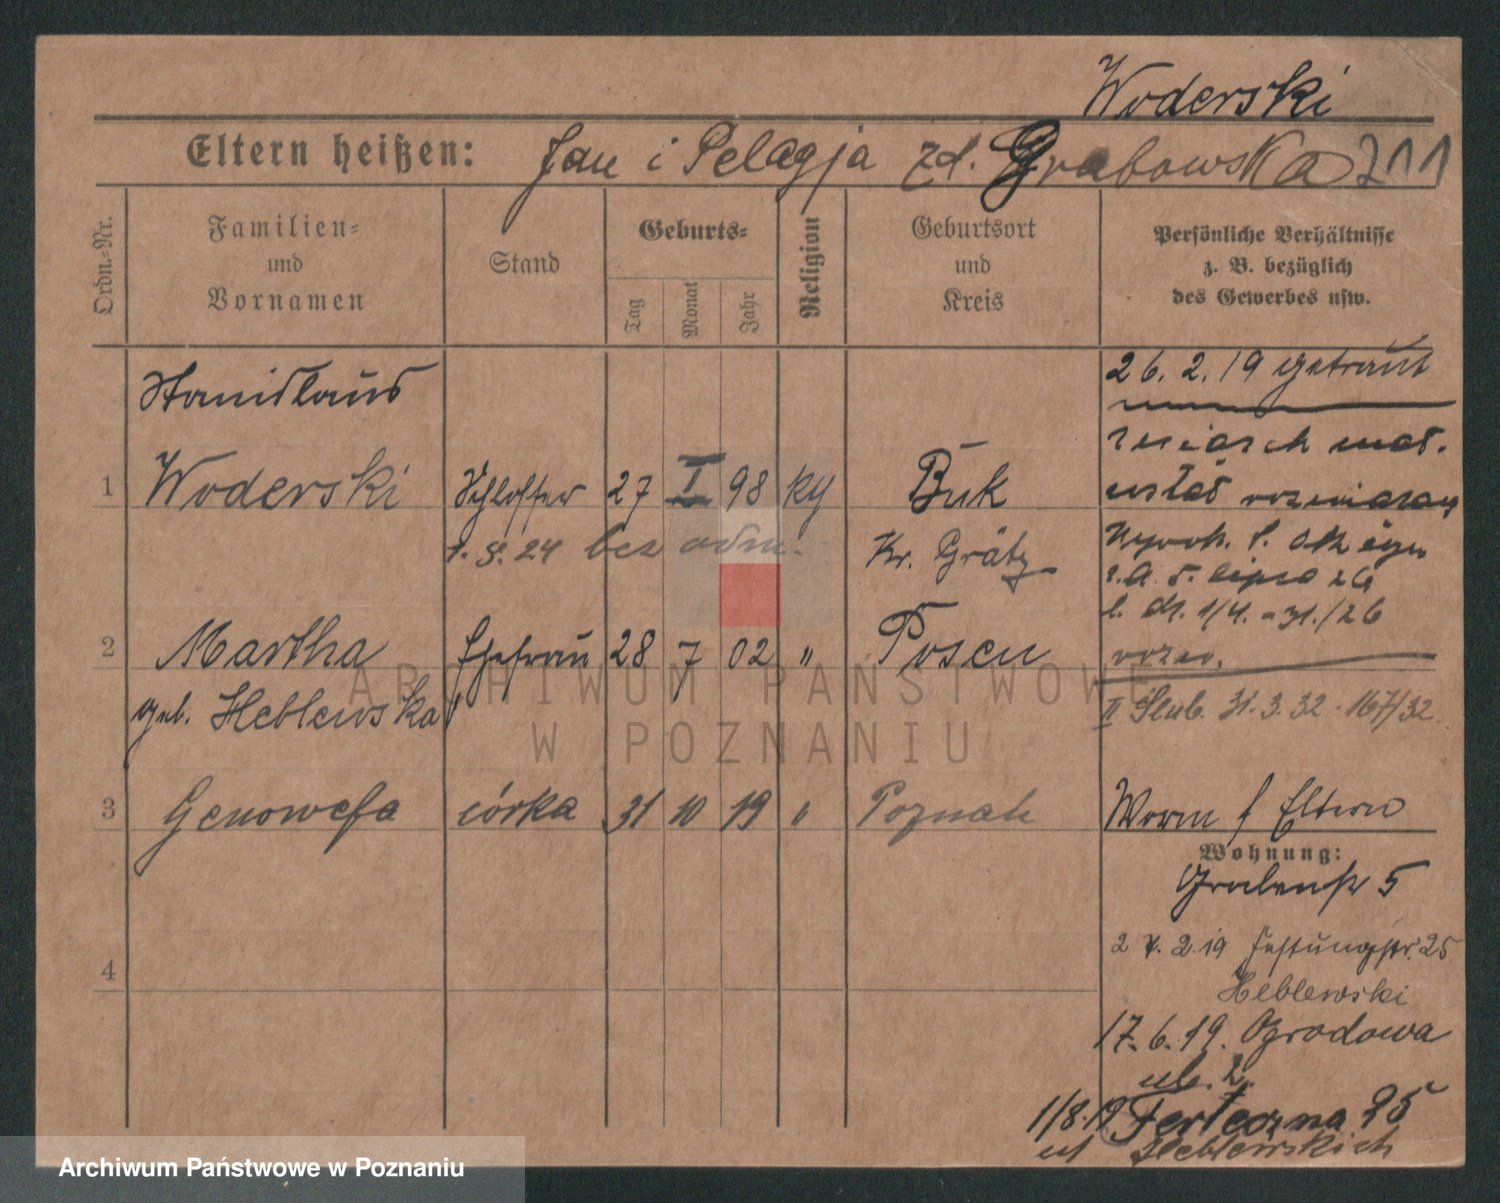 Woderski
Eltern heißen: Jan i Pelagja zd. Grabowska 211
Ordn.-Nr.
Familien-
und
Vornamen
Stand
Geburts-
Tag
Monat
Jahr
Religion
Geburtsort
und
Kreis
Persönliche Verhältnisse
z. B. bezüglich
des Gewerbes usw.
Stanislaus
1 Woderski Schlosser 27 I 98 kg Buk
Kr. Grätz
1. 8. 24 bez adm.
2 Martha Ehefrau 28 7 02 " Posen
geb. Heblewska
3 Genowefa córka 31 10 19 " Poznań
4
26. 2. 19 getraut
II Slub. 31. 3. 32. 167/32
Worm f Eltern
Wohnung:
Grabenstr 5
2 4. 2. 19 Festungstr. 25
Heblewski
17. 6. 19. Ogrodowa
ul. 2.
1/8.19 Forteczna 25
Heblewskich
ARCHIWUM PAŃSTWOWE
W POZNANIU
Archiwum Państwowe w Poznaniu